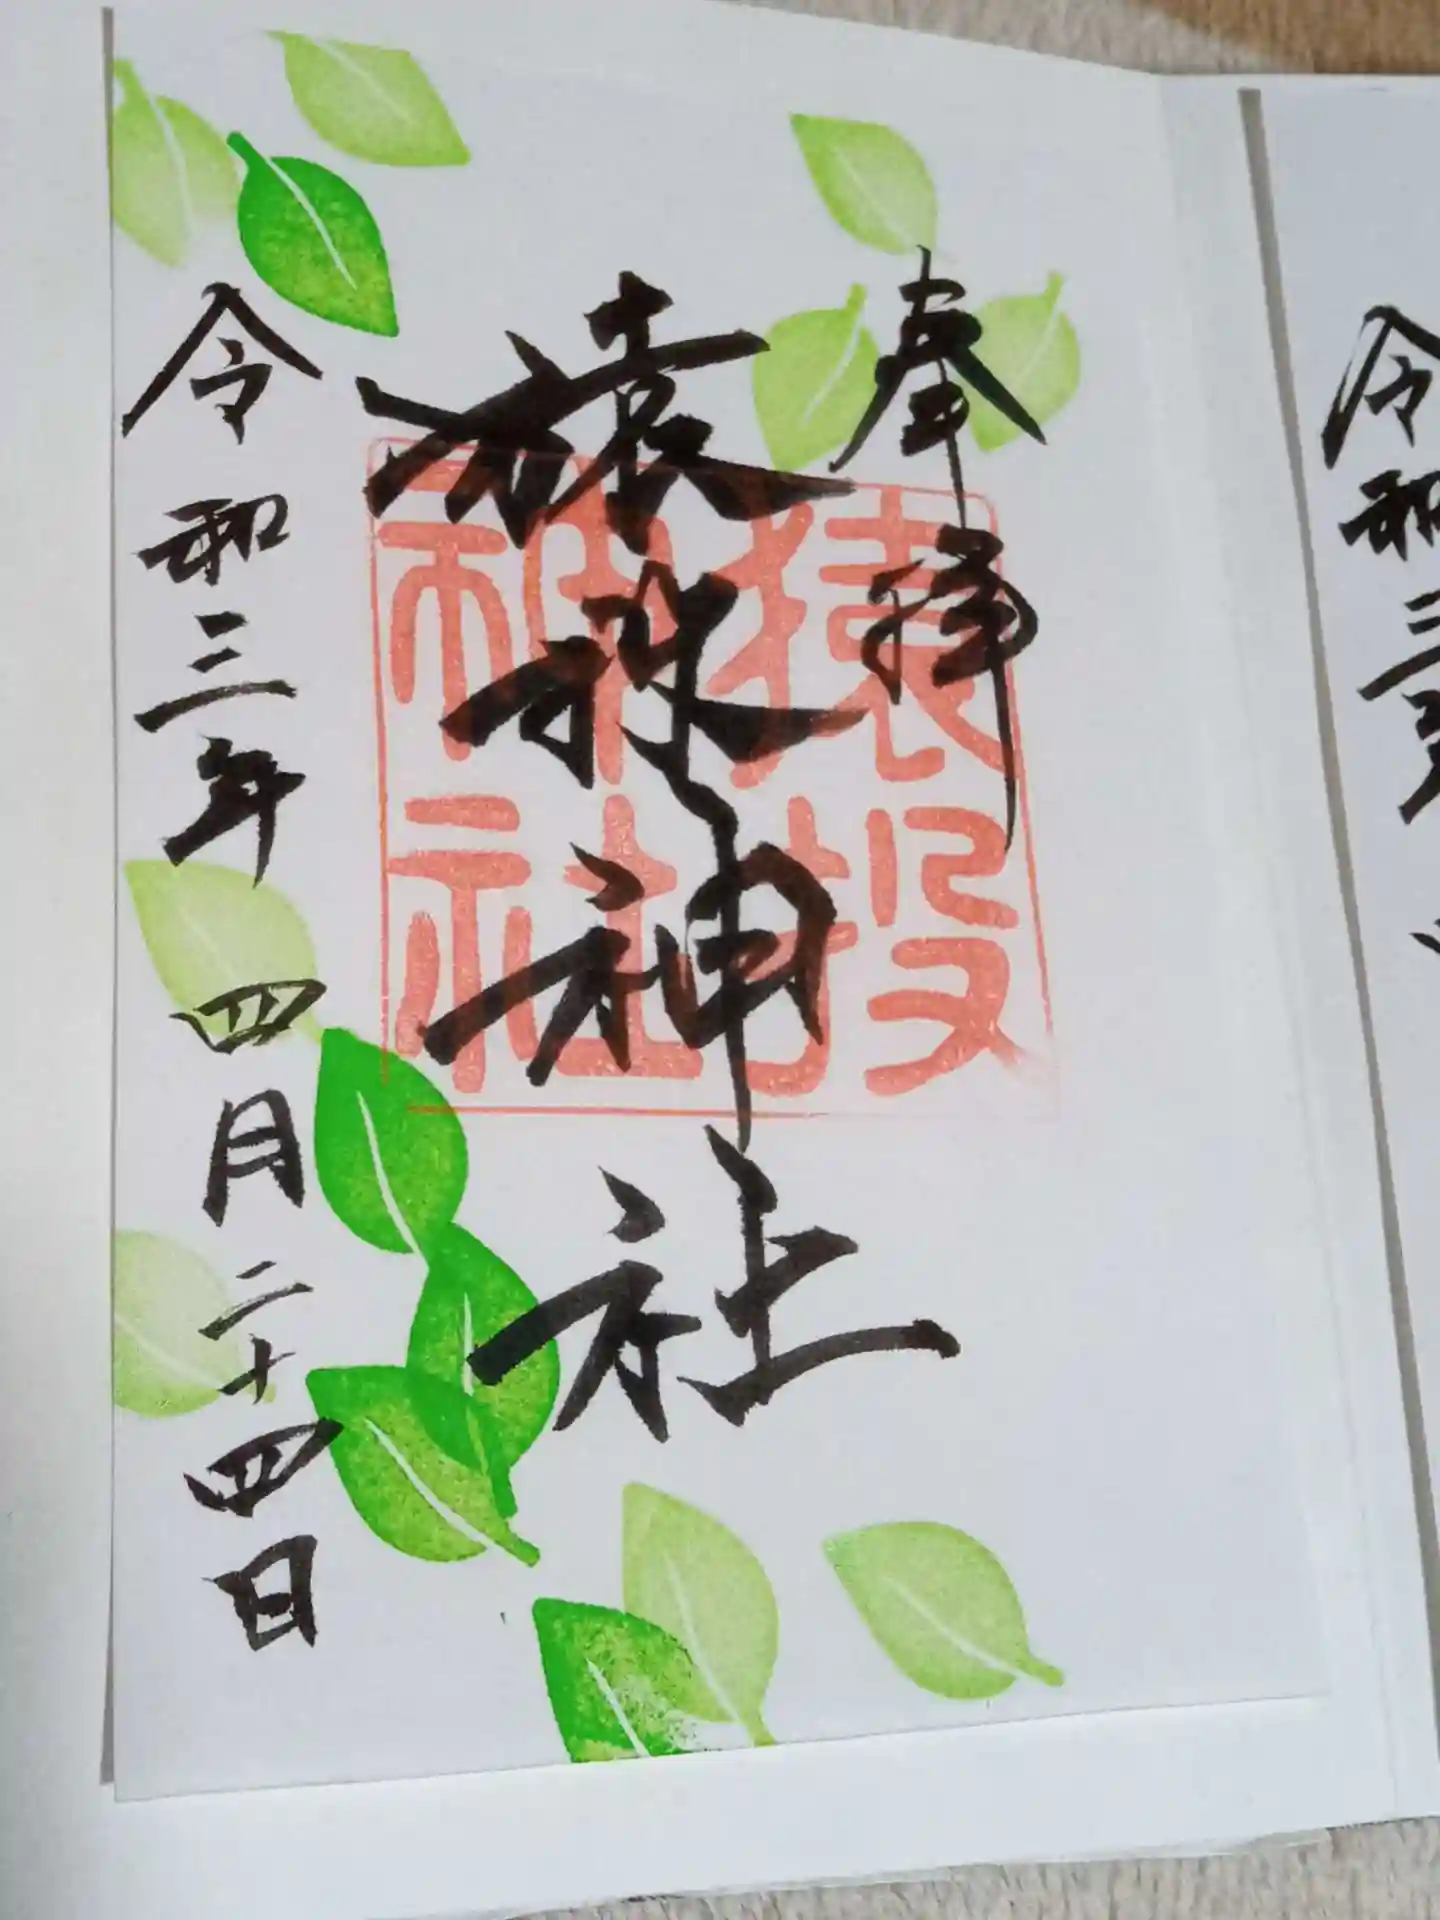 奉拝
猿投神社
猿投神社
令和三年 四月二十四日
令和三年